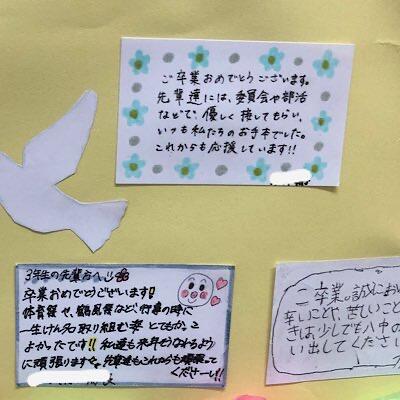 ご卒業おめでとうございます。
先輩達には、委員会や部活
などで、優しく接してもらい、
いつも私たちのお手本でした。
これからも応援しています!!
3年生の先輩方へ
卒業おめでとうございます!
体育祭や、鶴風祭など、行事の時に
一生けん命取り組む姿とてもかっこ
よかったです!! 私達も来年そうなれるように
頑張りますので、先輩達もこれからも頑張って
くださーい!!
ご卒業。誠にお
辛いことや、苦しいこと
きは、少しでも八中の
い出してください